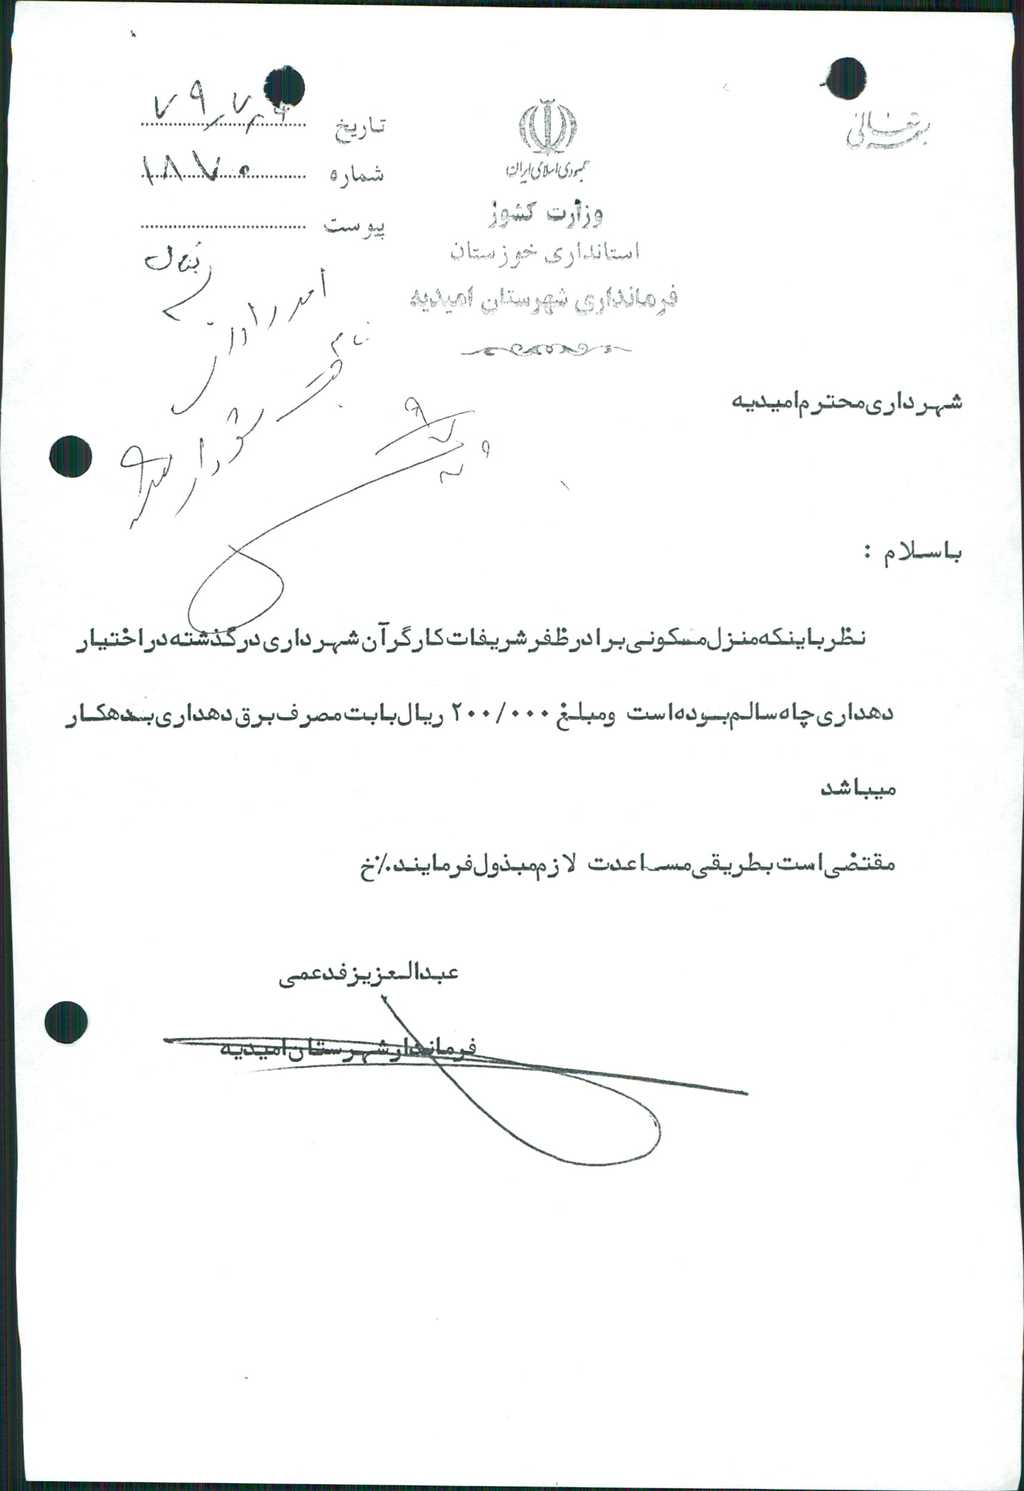 بسمه تعالی
جمهوری اسلامی ایران
وزارت کشور
استانداری خوزستان
فرمانداری شهرستان امیدیه
تاریخ
شماره ۱۸۷۰
پیوست
شهرداری محترم امیدیه
باسلام :
نظر باینکه منزل مسکونی برادر ظفر شریفات کارگر آن شهرداری در گذشته در اختیار
دهداری چاه سالم بوده است ومبلغ ۲۰۰/۰۰۰ ریال بابت مصرف برق دهداری بدهکار
میباشد
مقتضی است بطریقی مساعدت لازم مبذول فرمایند.٪خ
عبدالعزیز فدعمی
فرماندار شهرستان امیدیه